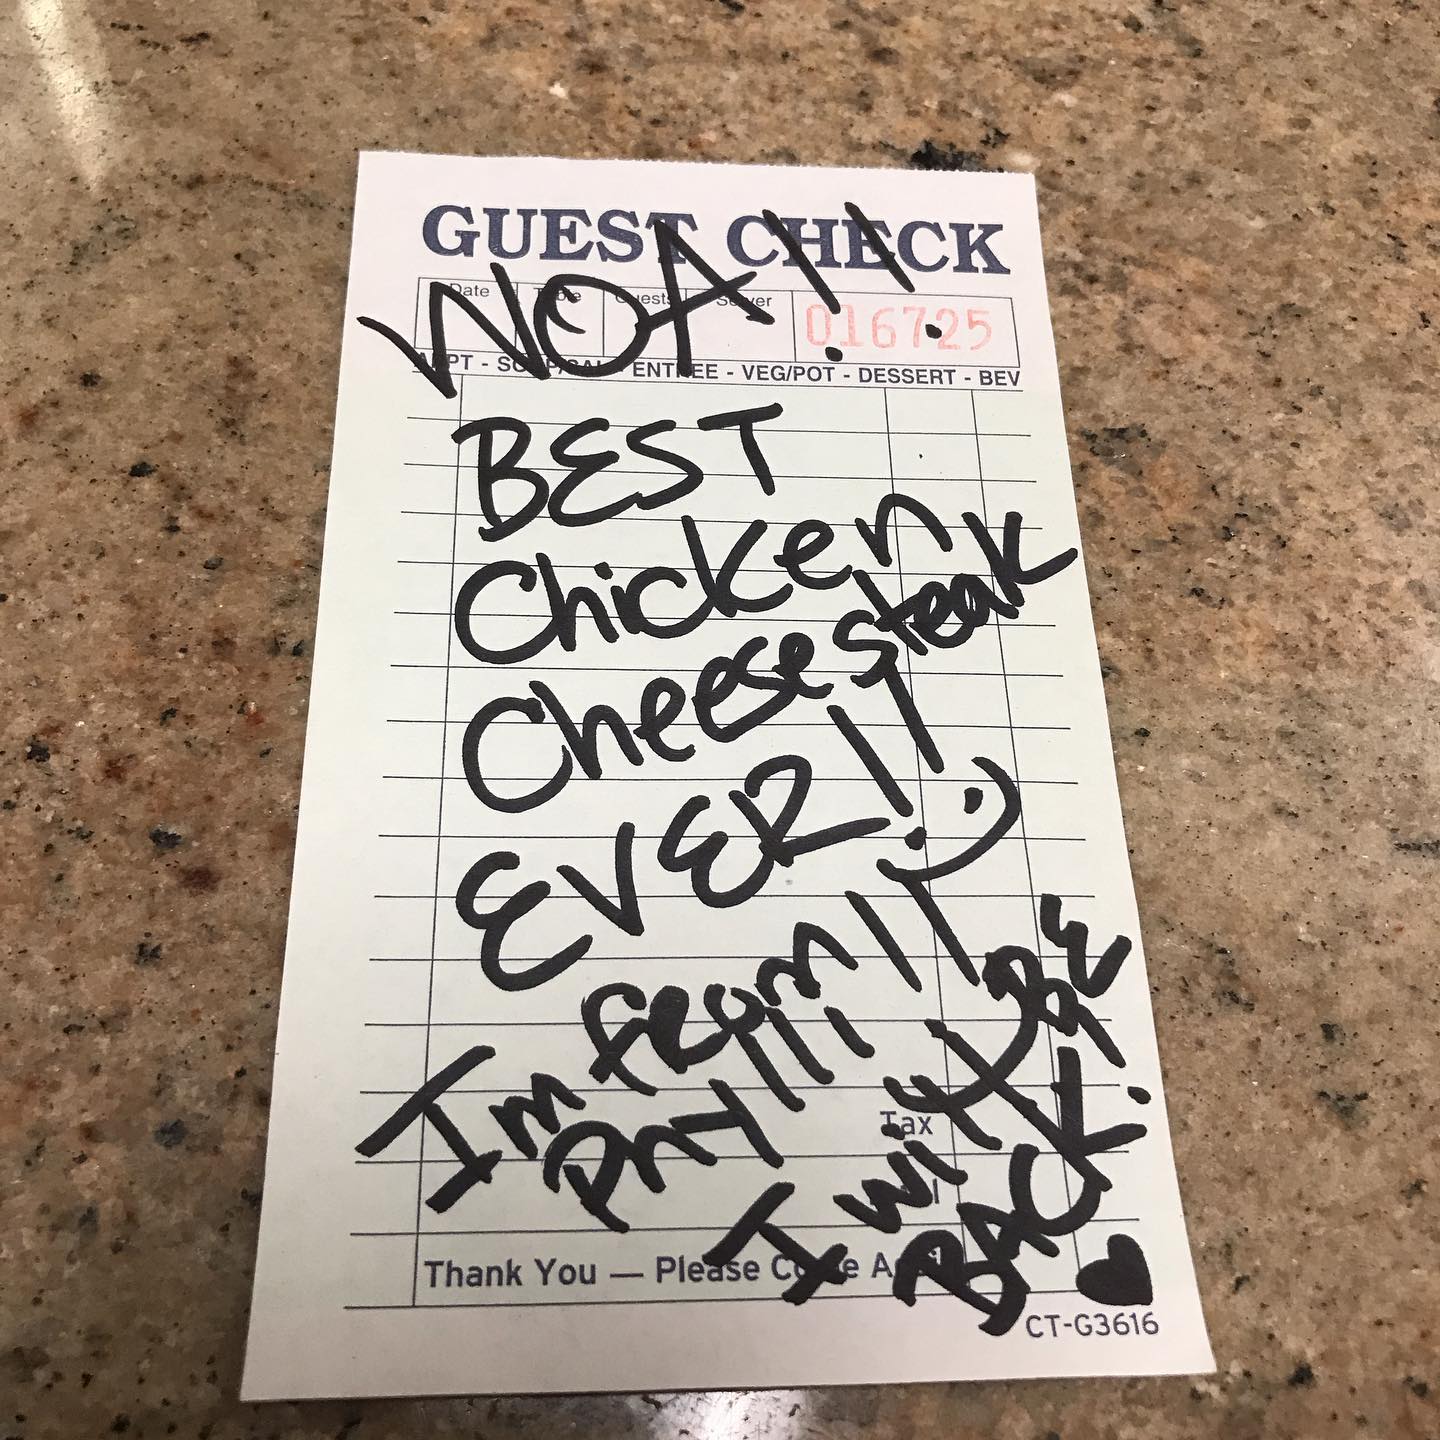 GUEST CHECK
WOA!!
Date Table Guests Server 016725
APPT - SOUP/SAL - ENTREE - VEG/POT - DESSERT - BEV
BEST
Chicken
Cheesesteak
EVER!!
Im from
PHY!!!!
I will BE
BACK!
Tax
Thank You — Please Come Again
CT-G3616